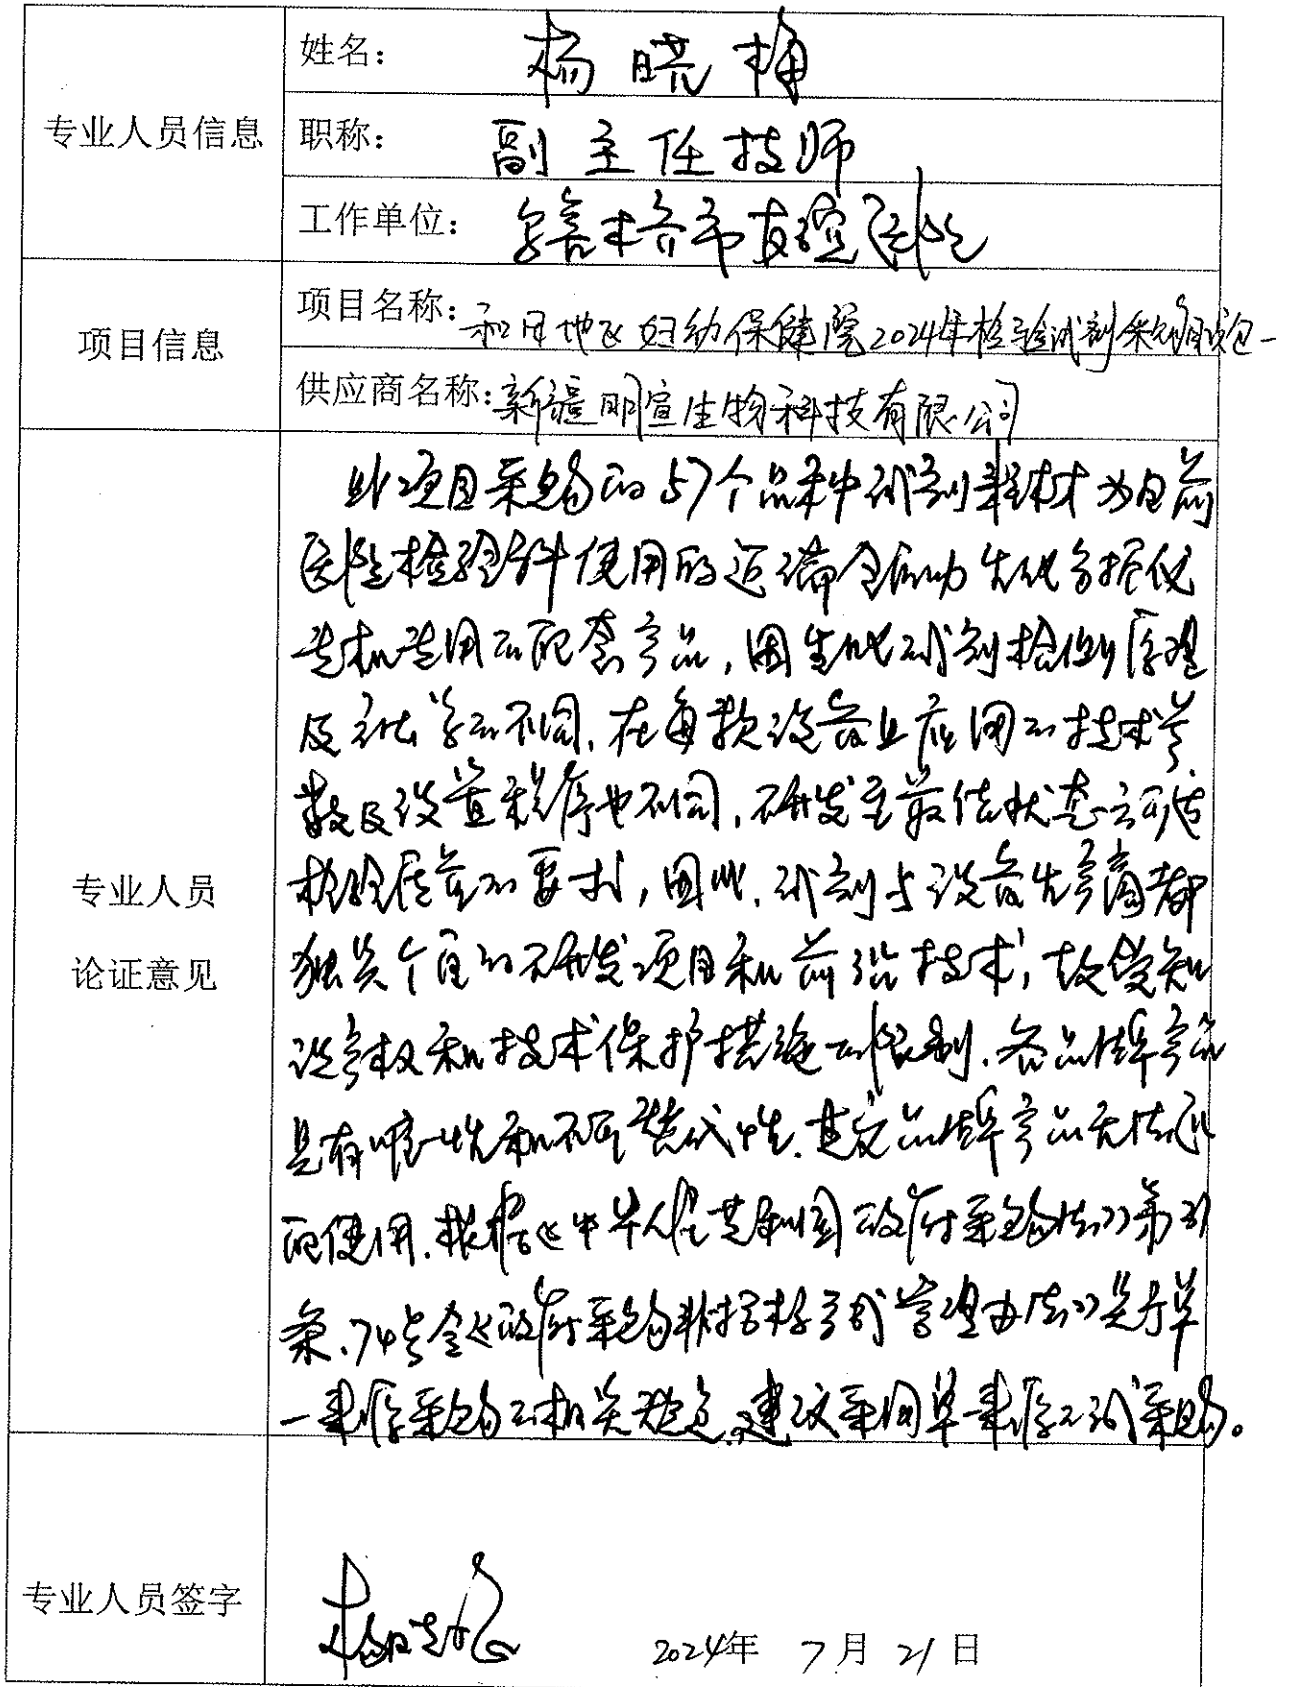 专业人员信息
姓名：杨晓梅
职称：副主任技师
工作单位：乌鲁木齐市友谊医院
项目信息
项目名称：和田地区妇幼保健院2024年检验试剂采购项目包一
供应商名称：新疆明宣生物科技有限公司
专业人员
论证意见
此项目采购的57个品种中试剂耗材为目前
医院检验科使用的迈瑞全自动生化分析仪
专机专用的配套产品，因生化试剂检测原理
及方法学的不同，在每款设备上应用的技术参
数及设置程序也不同，研发至最佳状态方可达
检验质量的要求，因此，试剂与设备生产商都
独具个自的研发项目和前沿技术，故受知
识产权和技术保护措施的限制，各品牌产品
具有唯一性和不可替代性，其它品牌产品无法匹
配使用，根据《中华人民共和国政府采购法》第31
条、74号令《政府采购非招标方式管理办法》关于单
一来源采购的相关规定，建议采用单一来源方式采购。
专业人员签字
2024年 7月 21日